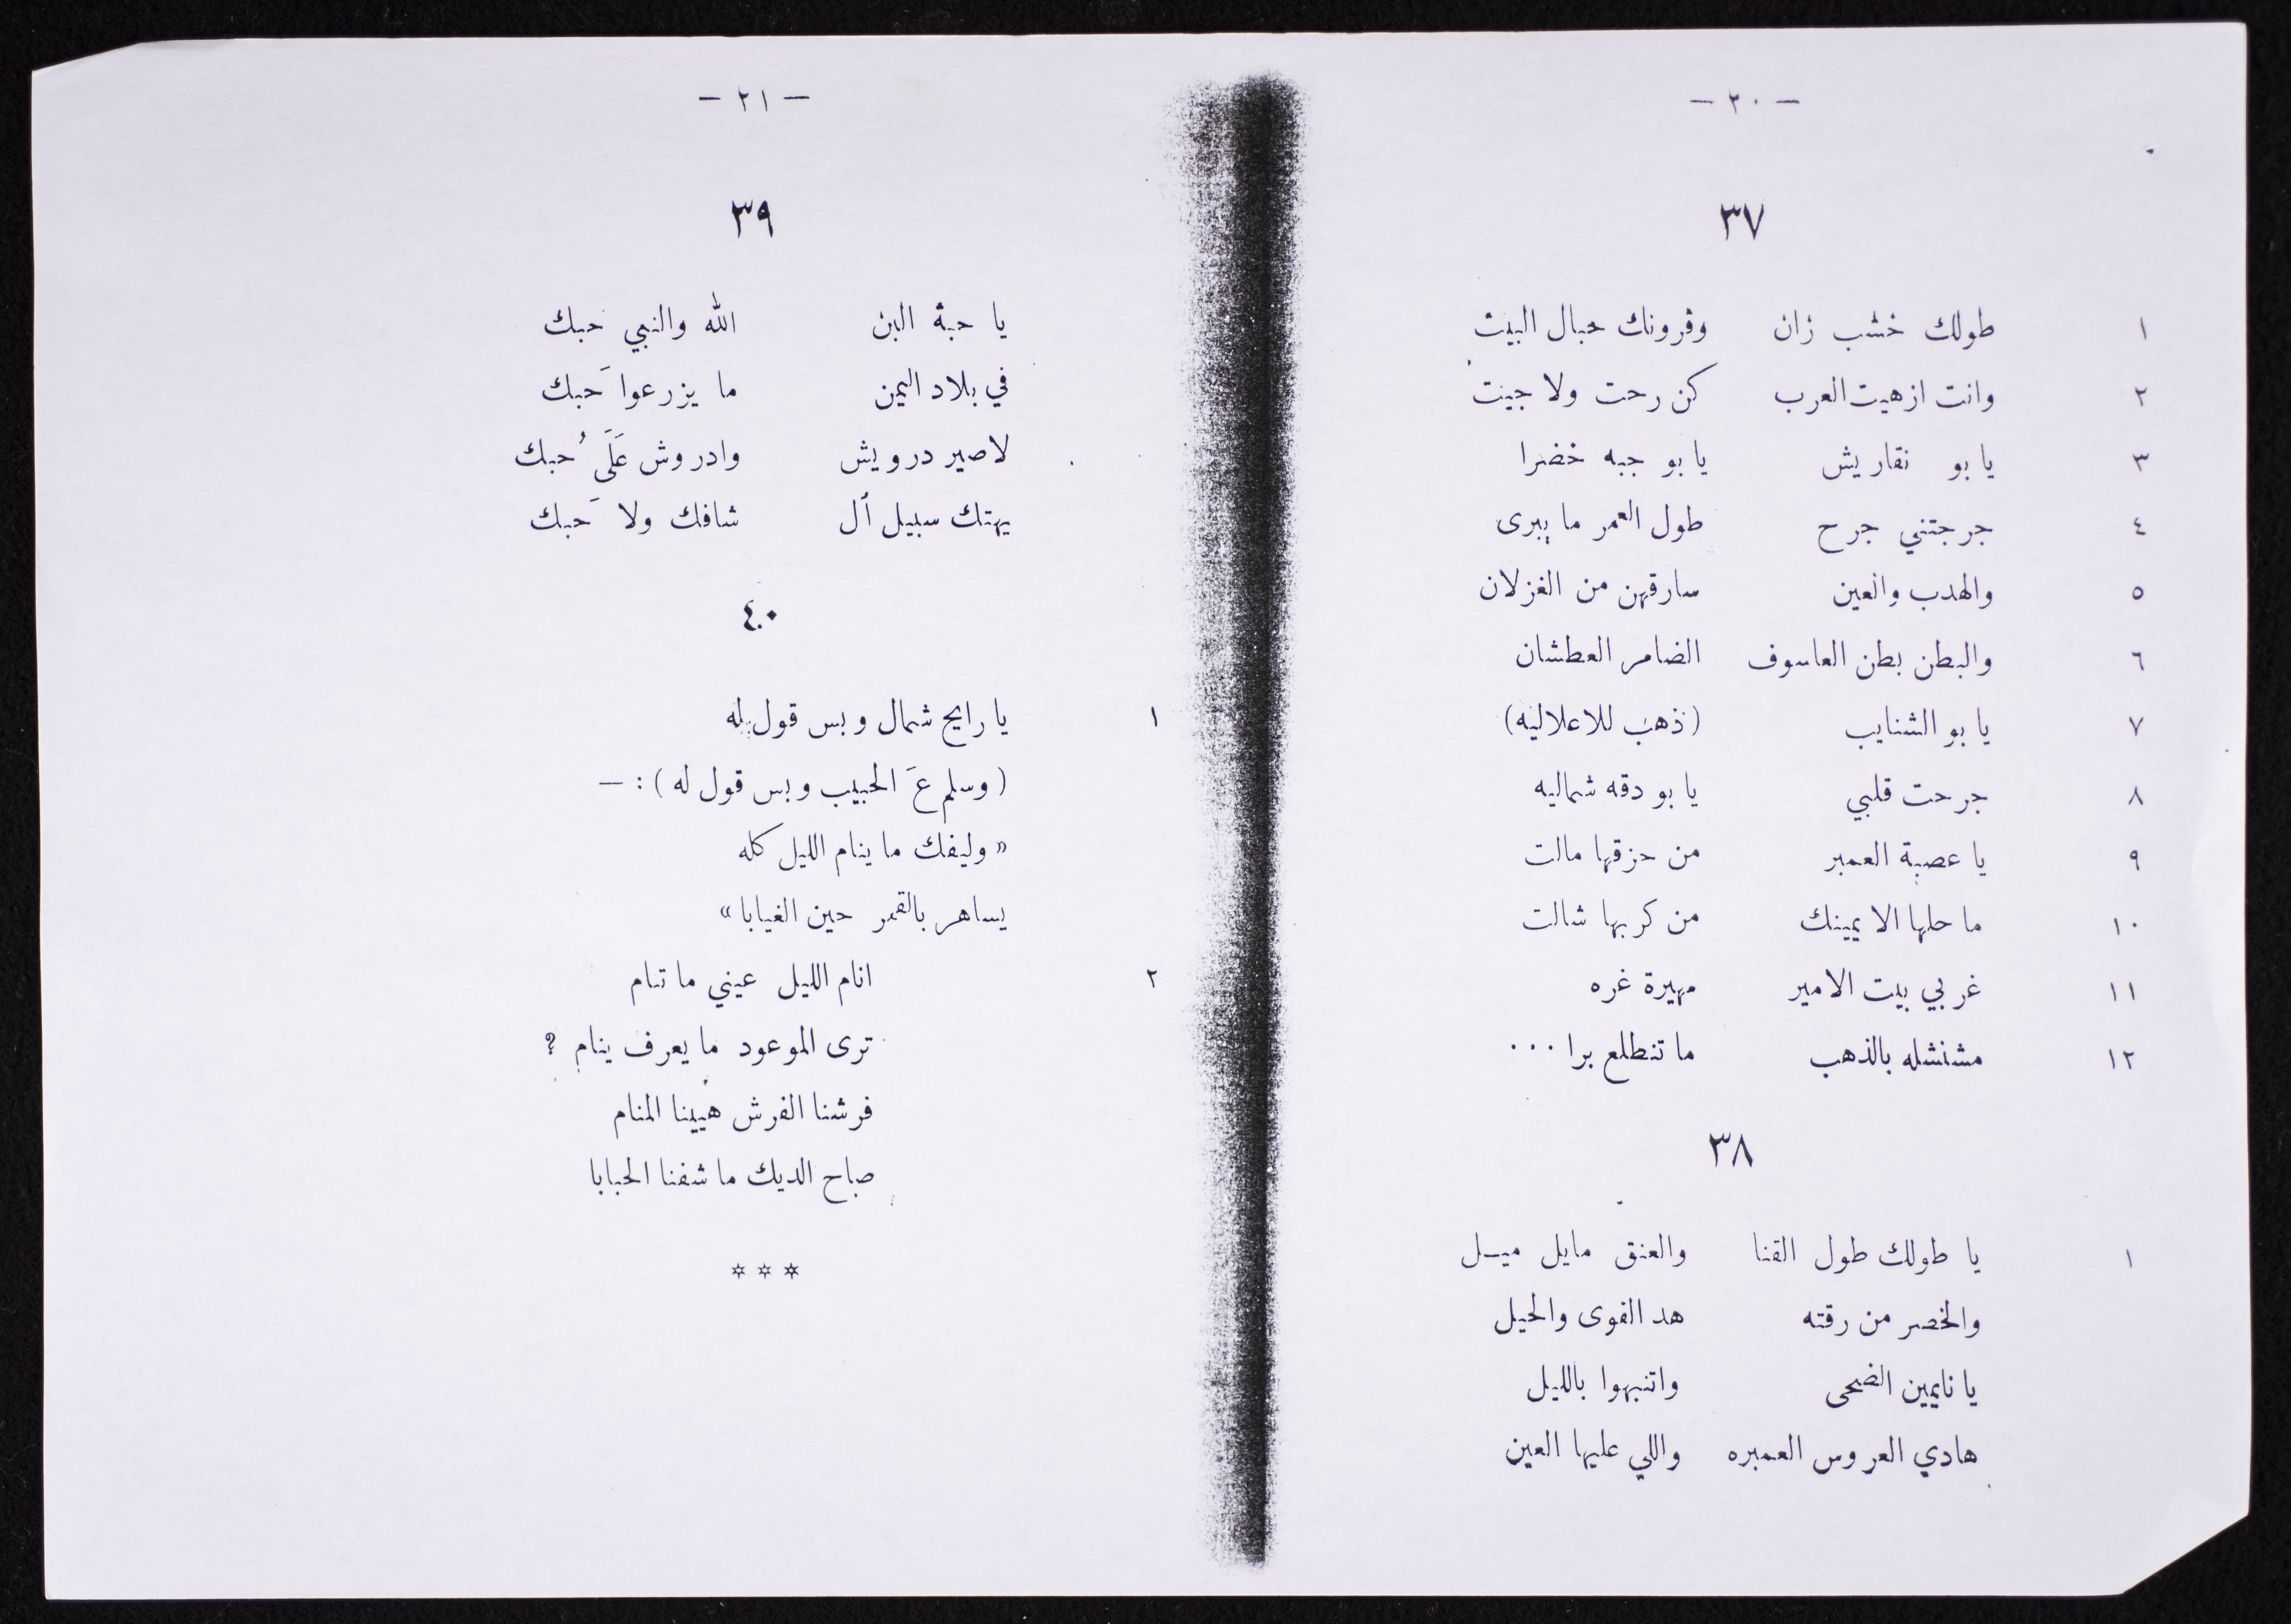 — ٢٠ —
٣٧
١ طولك خشب زان وقرونك حبال البيت
٢ وانت ازهيت العرب كن رحت ولا جيت
٣ يا بو نقاريش يا بو جبه خضرا
٤ جرجتني جرح طول العمر ما يبرى
٥ والهدب والعين سارقهن من الغزلان
٦ والبطن بطن العاسوف الضامر العطشان
٧ يا بو الشنايب (ذهب للاعلاليه)
٨ جرحت قلبي يا بو دقه شماليه
٩ يا عصبة العمبر من حزقها مالت
١٠ ما حلها الا يمينك من كربها شالت
١١ غربي بيت الامير مهيرة غره
١٢ مشنشله بالذهب ما تنطلع برا ...
٣٨
١ يا طولك طول القنا والعنق مايل ميـل
والخصر من رقته هد القوى والحيل
يا نايمين الضحى واتنبهوا بالليل
هادي العروس العمبره واللي عليها العين
— ٢١ —
٣٩
يا حبة البن الله والنبي حبك
في بلاد اليمن ما يزرعوا حَبك
لاصير درويش وادروش عَلَى حُبك
يهتك سبيل ال شافك ولا حَبك
٤٠
١ يا رايح شمال وبس قول له
(وسلم عَ الحبيب وبس قول له) : —
« وليفك ما ينام الليل كله
يساهر بالقمر حين الغيابا »
٢ انام الليل عيني ما تنام
ترى الموعود ما يعرف ينام ؟
فرشنا الفرش هيينا المنام
صباح الديك ما شفنا الحبابا
* * *